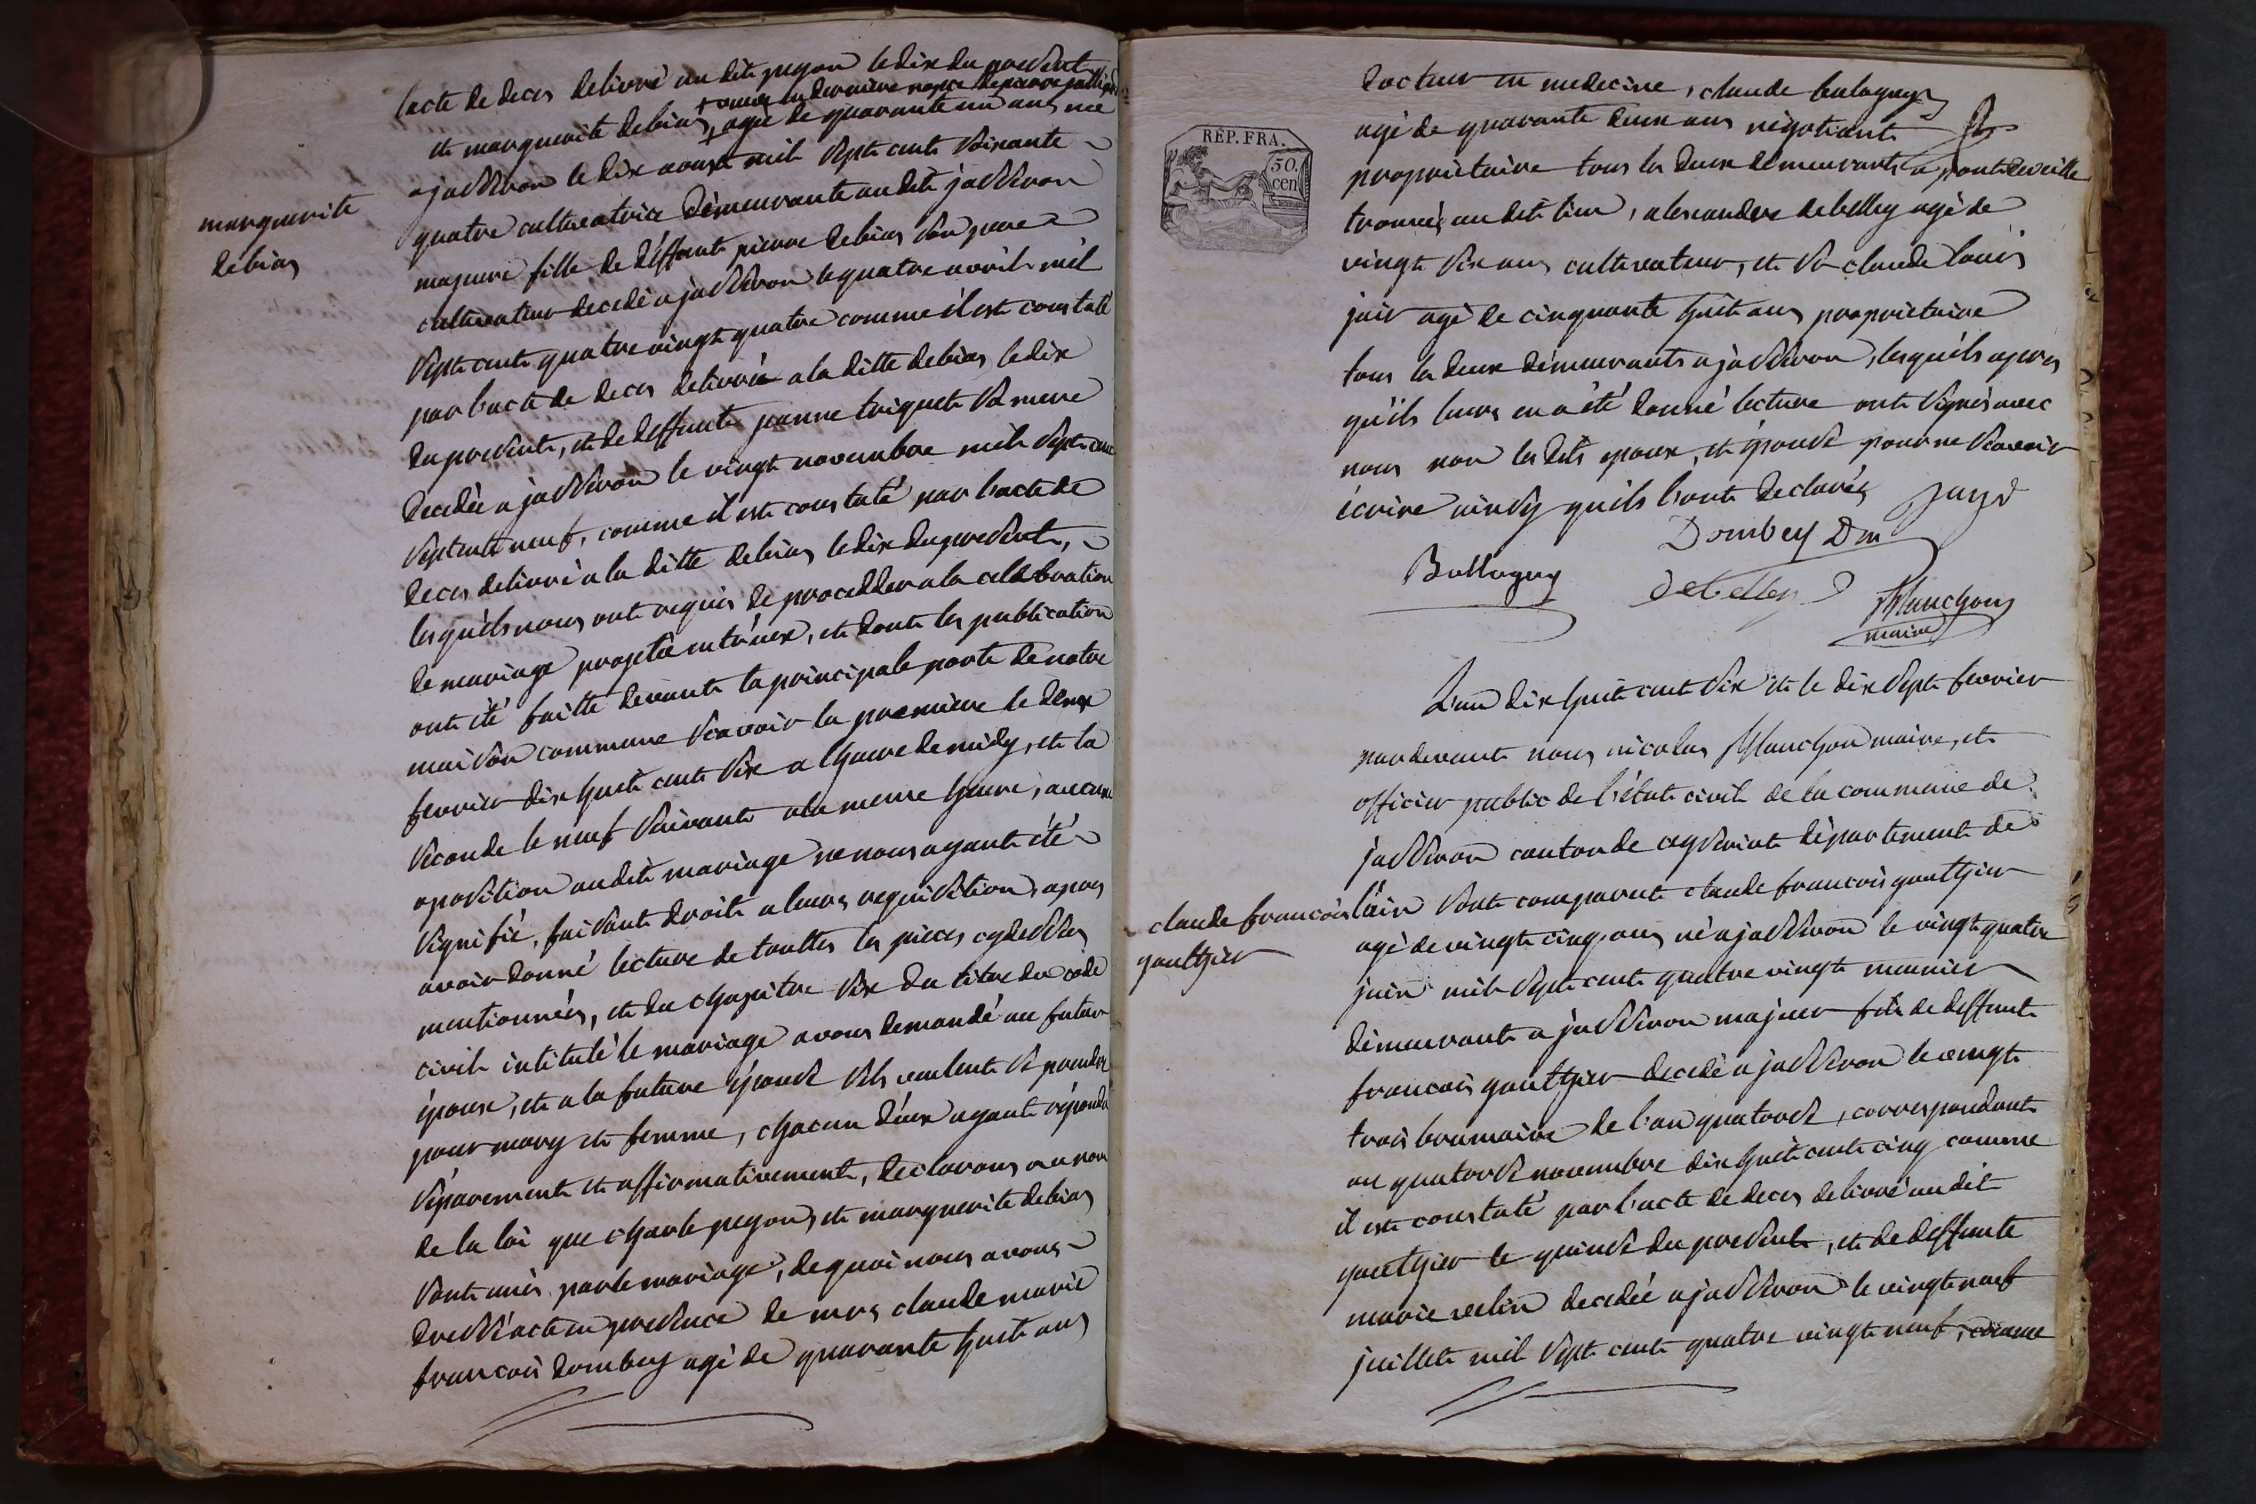 lacte de deces delivré au dit pugeon le dix du present
veuve en derniere nopce de pierre
et marguerite debias, agée de quarante un ans née
a jasseron le dix aoust mil sept cent soixante
marguerite
debias
quatre cultivatrice demeurante au dit jasseron
majeure fille de deffunt pierre debias son pere
cultivateur decedé a jasseron le quatre avril mil
sept cent quatre vingt quatre comme il est constaté
par l'acte de deces delivrée a la ditte debias le dix
du present, et de deffunte jeanne triquet sa mere
decedée a jasseron le vingt novembre mil sept cent
septante neuf, comme il est constaté par l'acte de
deces delivré a la ditte debias le dix du present,
lesquels nous ont requis de proceder a la celebration
de mariage projettée entr'eux, et dont les publication
ont été faitte devant la principale porte de notre
maison commune sçavoir la premiere le deux
fevrier dix huit cent six a l'heure de midy, et la
seconde le neuf suivant a la meme heure, aucune
oposition audit mariage ne nous ayant été
signifié, faisant droit a leurs requisition, apres
avoir donné lecture de touttes les pieces cydessus
mentionnées, et du chapitre six du titre du code
civil intitulé le mariage avons demandé au futur
époux, et a la future épouse s'ils veulent se prendre
pour mary et femme, chacun d'eux ayant répondu
séparement et affirmativement, declarons au nom
de la loi que charle pegon, et marguerite debias
sont unis par le mariage, de quoi nous avons
dressé acte en presence de mrs claude marie
françois dombey agé de quarante huit ans
RÉP. FRA.
50.
cen
docteur en medecine, claude balaguy
agé de quarante deux ans négotiant
propriétaire tous les deux demeurants a pontdeveille
trouvés au dit lieu, alexandre debelley agé de
vingt six ans cultivateur, et sr claude louis
jair agé de cinquante huit ans propriétaire
tous les deux demeurants a jasseron, lesquels apres
qu'ils leurs en a été donné lecture ont signés avec
nous non les dits epoux, et épouse pour ne sçavoir
écrire ainsy qu'ils l'ont declarés
Dombey Dm
Ballaguy
debelley
Manchon
maire
L'an dix huit cent six et le dix sept fevrier
pardevant nous nicolas Manchon maire, et
officier public de l'état civil de la commune de
jasseron canton de ceyseriat département de
claude françois
gaulthier
l'ain sont comparut claude françois gaulthier
agé de vingt cinq ans né a jasseron le vingt quatre
juin mil sept cent quatre vingt meunier
demeurant a jasseron majeur fils de deffunt
françois gaulthier decedé a jasseron le vingt
trois brumaire de l'an quatorze, correspondant
au quatorze novembre dix huit cent cinq comme
il est constaté par l'acte de deces delivré audit
gaulthier le quinze du present, et de deffunte
marie velin decedée a jasseron le vingt neuf
juillet mil sept cent quatre vingt neuf, comme